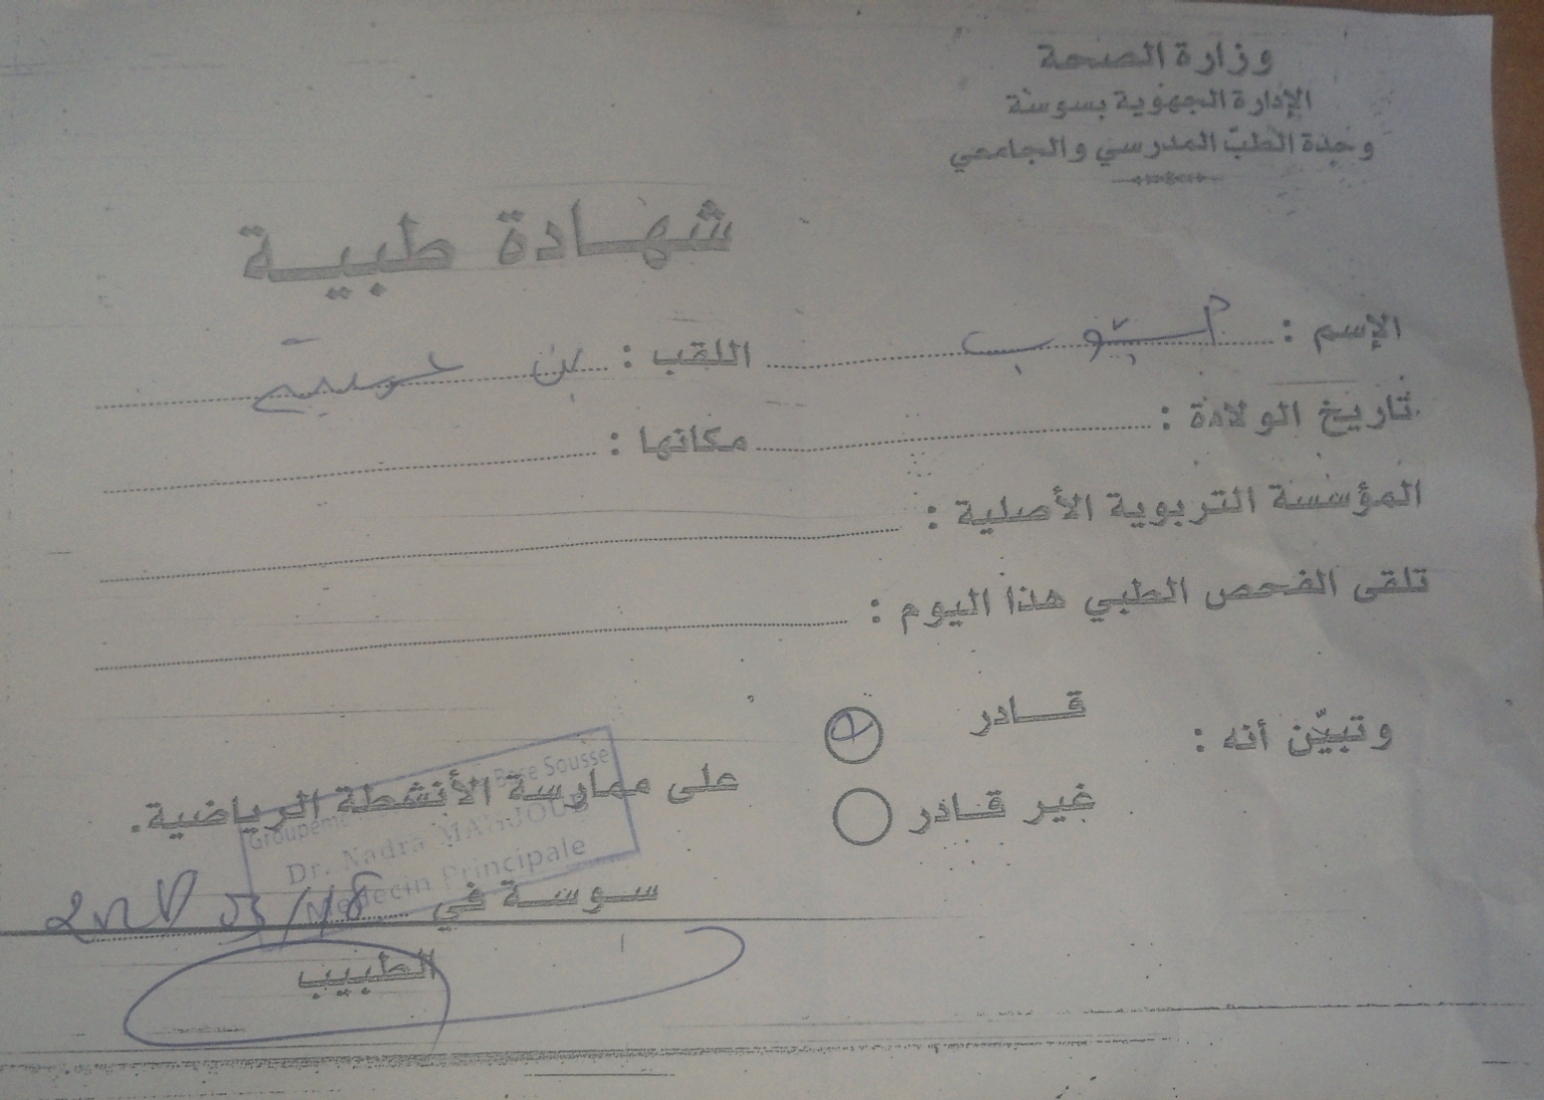 وزارة الصحة
الإدارة الجهوية بسوسة
وحدة الطبّ المدرسي والجامعي
شهادة طبية
الإسم : أيوب اللقب : بن
تاريخ الولادة : مكانها :
المؤسسة التربوية الأصلية :
تلقى الفحص الطبي هذا اليوم :
وتبيّن أنه : قادر
غير قادر
على ممارسة الأنشطة الرياضية.
Base Sousse
Dr. Nadra
Médecin Principale
سوسة في
الطبيب